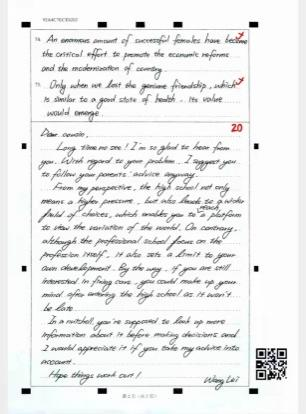 74. An enormous amount of successful females have become
the critical effort to promote the economic reforms
and the modernization of country.
75. Only when we lost the genuine friendship, which
is similar to a good state of health. Its value
would emerge.
20
Dear cousin,
Long time no see! I'm so glad to hear from
you. With regard to your problem, I suggest you
to follow your parents' advice anyway.
From my perspective, the high school not only
means a higher pressure, but also leads to a wider
field of choices, which enables you to reach a platform
to view the variation of the world. On contrary,
although the professional school focus on the
profession itself, it also sets a limit to your
own development. By the way, if you are still
interested in fixing cars, you could make up your
mind after entering the high school as it won't
be late.
In a nutshell, you're supposed to look up more
information about it before making decisions and
I would appreciate it if you take my advice into
account.
Hope things work out!
Wang Lei